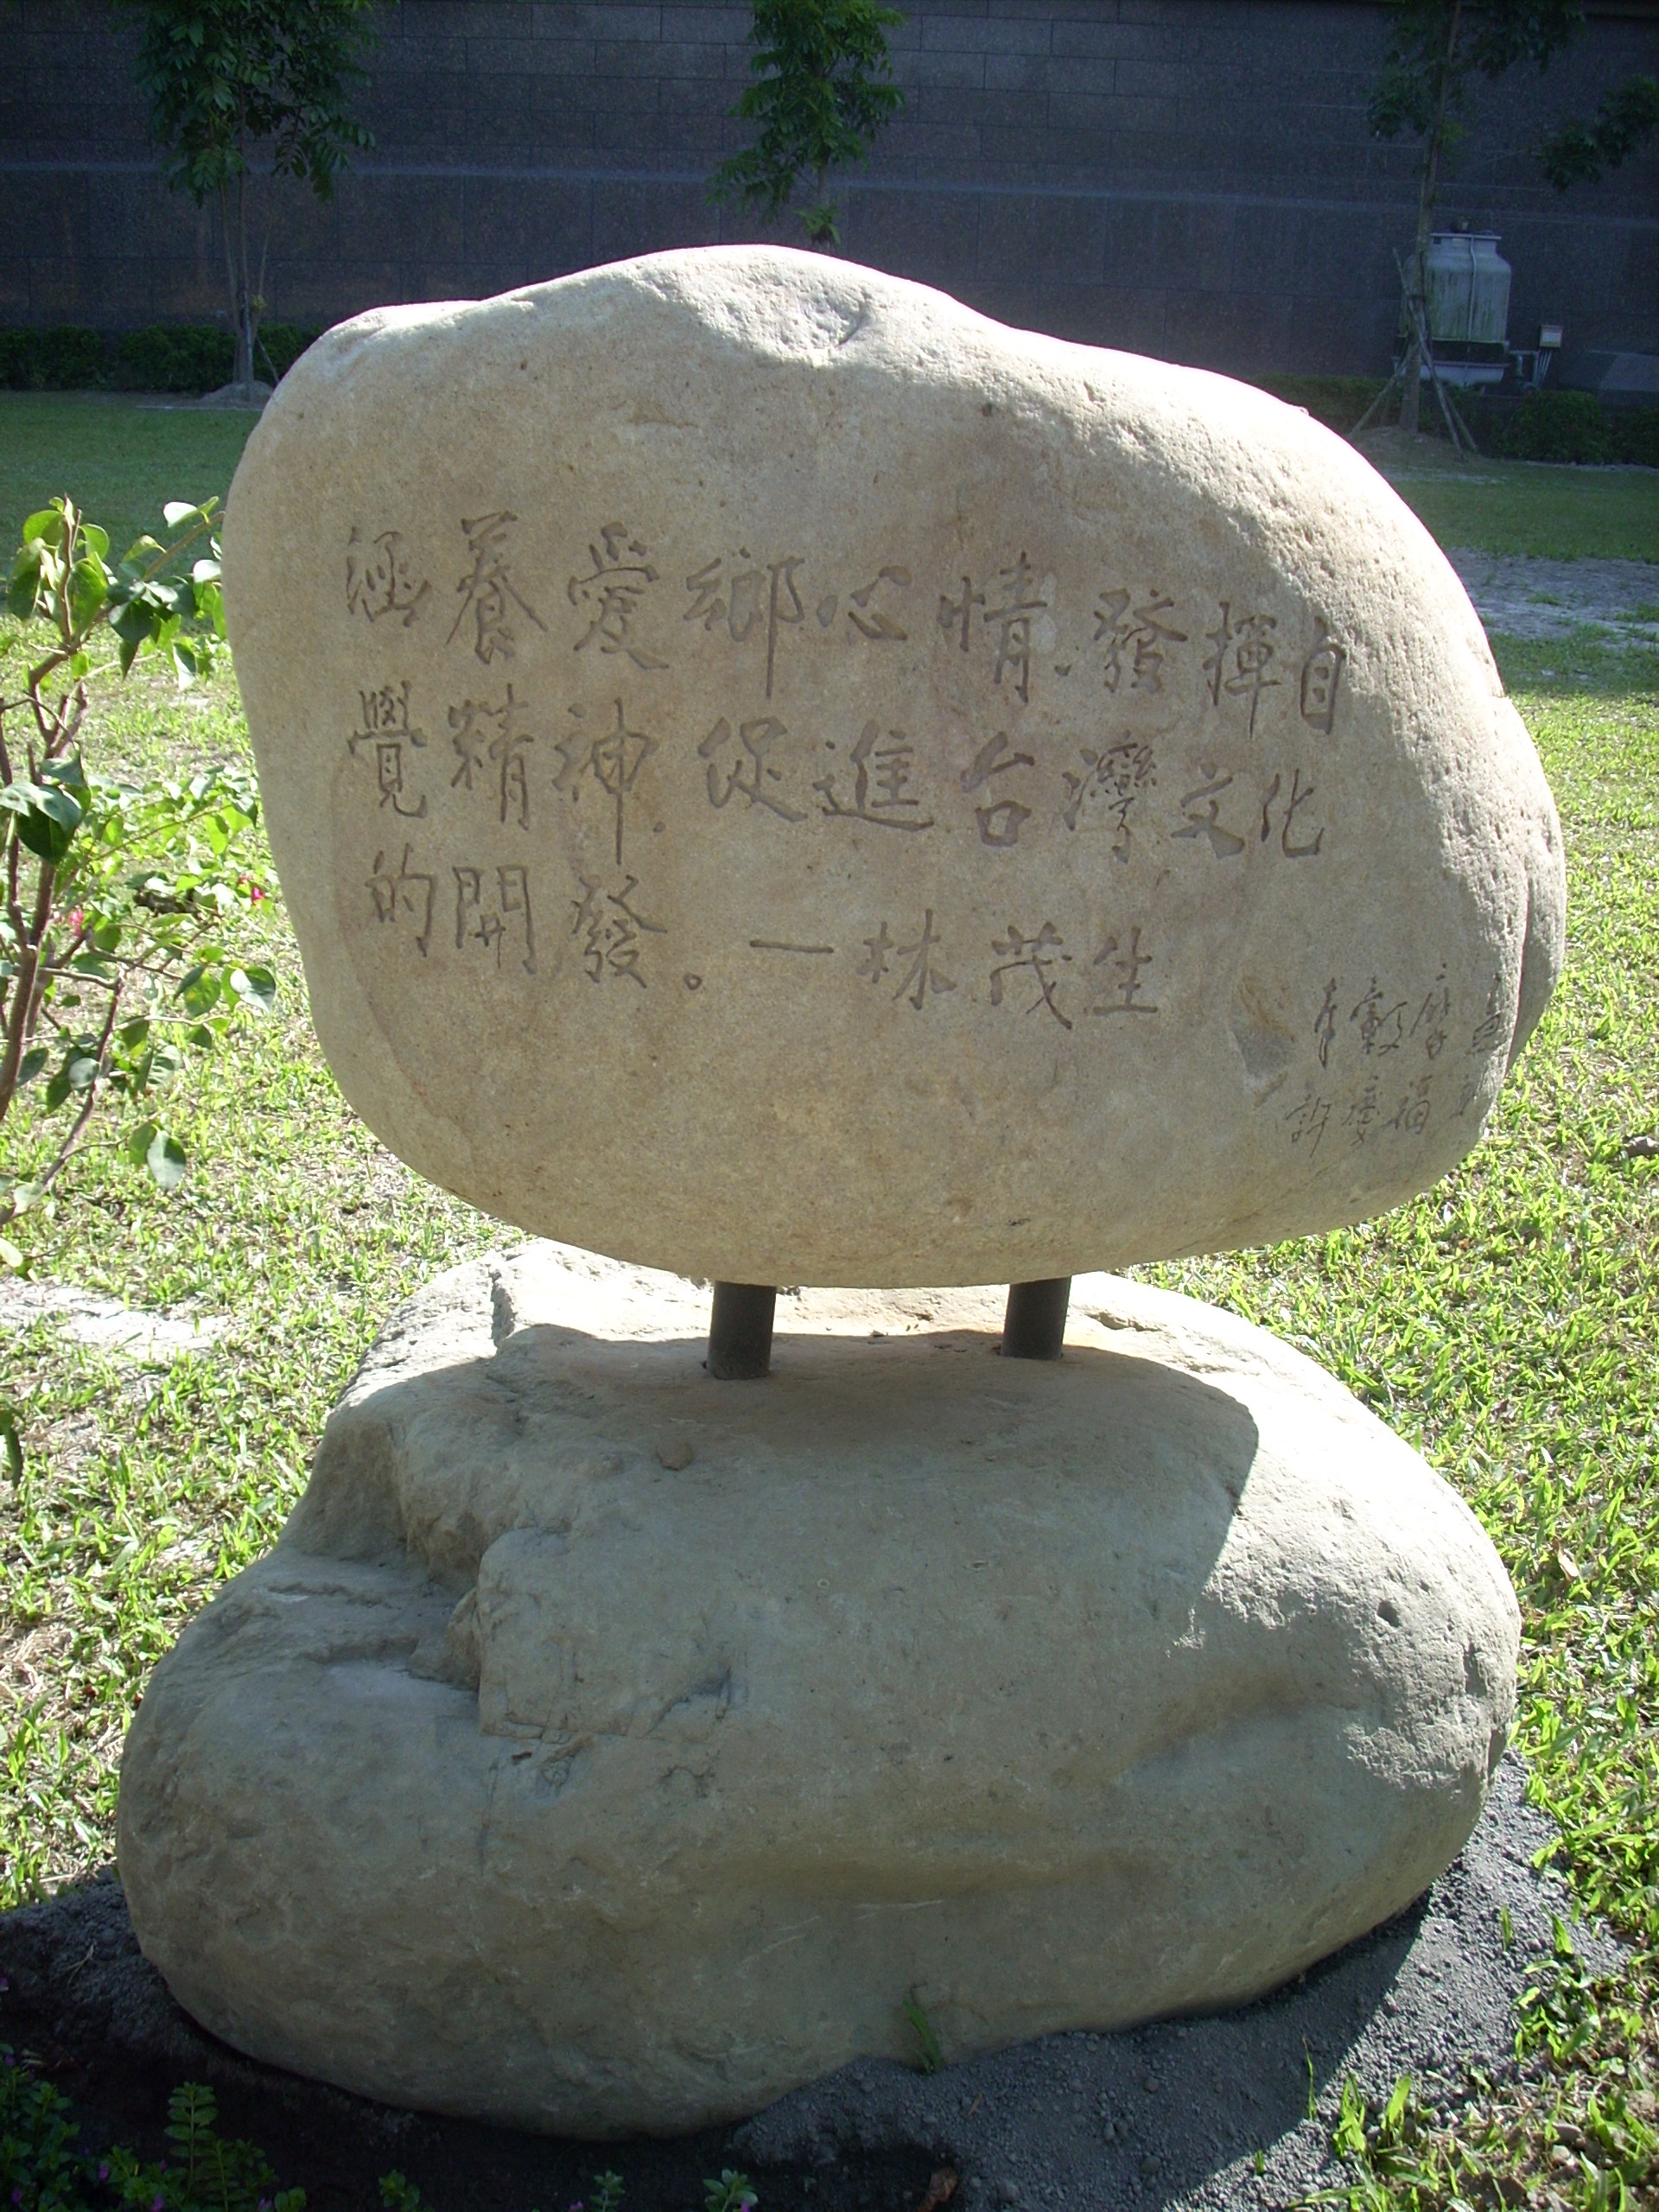 涵養愛鄉心情.發揮自
覺精神.促進台灣文化
的開發。—林茂生
許